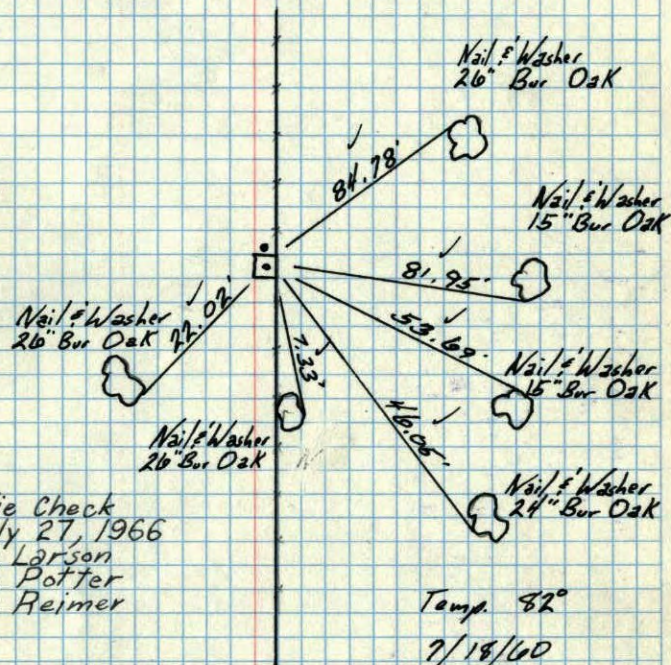 Nail & Washer
26" Bur Oak
84.78'
Nail & Washer
15" Bur Oak
81.95'
Nail & Washer
26" Bur Oak
22.02'
53.69'
Nail & Washer
15" Bur Oak
7.33'
46.05'
Nail & Washer
26" Bur Oak
Nail & Washer
24" Bur Oak
ie Check
ly 27, 1966
Larson
Potter
Reimer
Temp. 82°
7/18/60